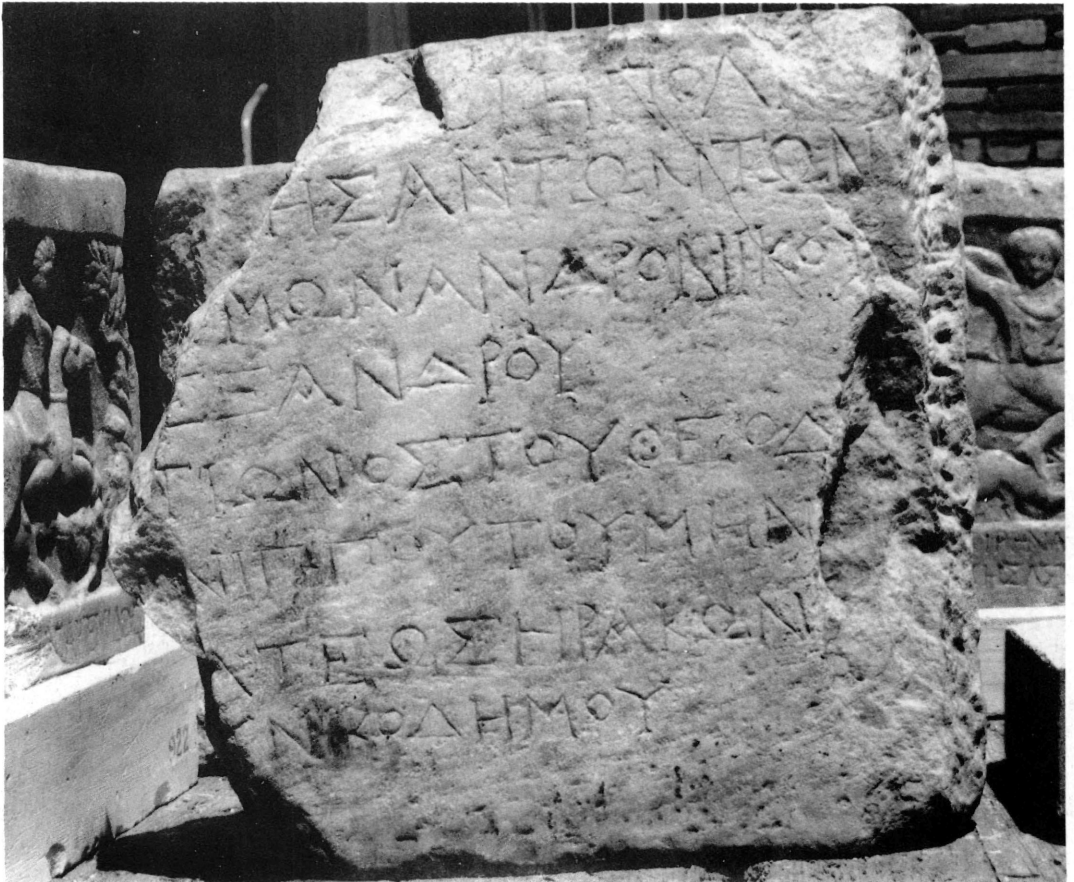 ΗΣΑΝΤΩΝ ΤΩΝ
ΜΩΝ ΑΝΔΡΟΝΙΚΟΥ
ΞΑΝΔΡΟΥ
ΤΙΩΝΟΣ ΤΟΥ ΘΕΟΔ
ΝΙΠΠΟΥ ΤΟΥ ΜΗΝ
ΤΕΩΣ ΗΡΑΚΩΝ
ΝΙΚΟΔΗΜΟΥ
922